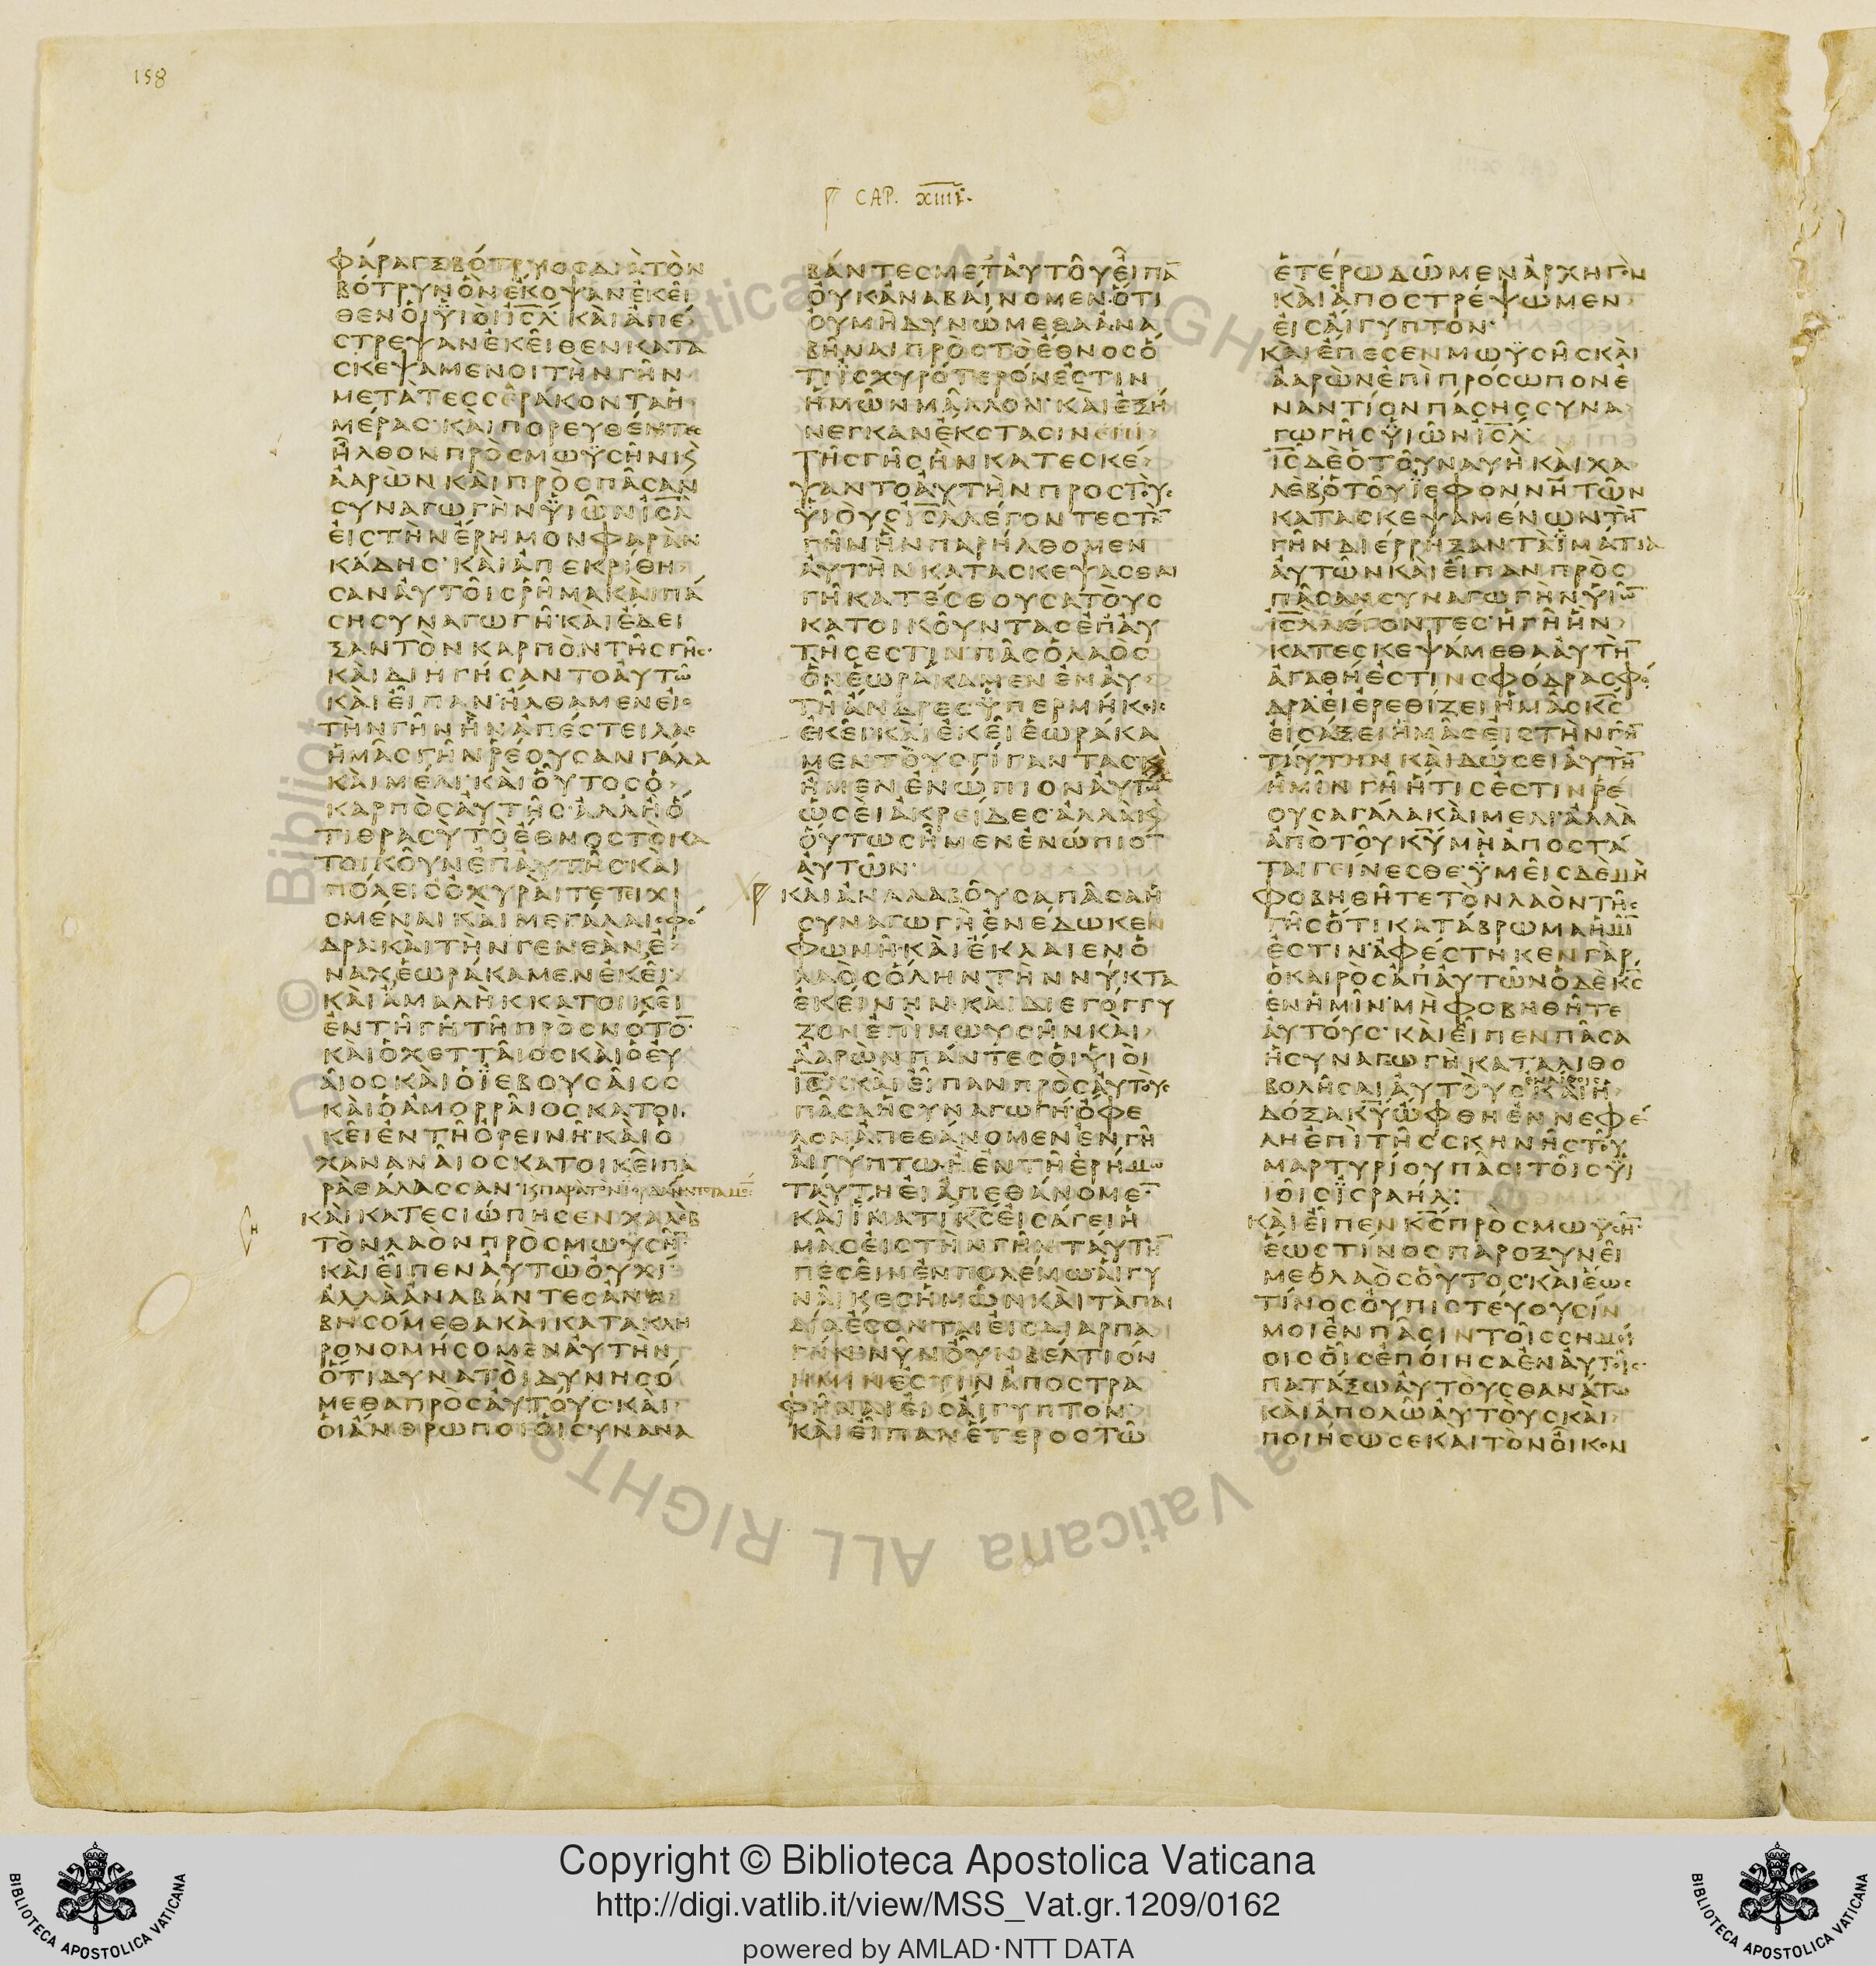 158
CAP. XIIII.
ΦΑΡΑΓΞ ΒΟΤΡΥΟΣ ΔΙΑ ΤΟΝ
ΒΟΤΡΥΝ ΟΝ ΕΚΟΨΑΝ ΕΚΕΙ
ΘΕΝ ΟΙ ΫΙΟΙ ΙΣΛ ΚΑΙ ΑΠΕ
ΣΤΡΕΨΑΝ ΕΚΕΙΘΕΝ ΚΑΤΑ
ΣΚΕΨΑΜΕΝΟΙ ΤΗΝ ΓΗΝ
ΜΕΤΑ ΤΕΣΣΕΡΑΚΟΝΤΑ Η
ΜΕΡΑΣ ΚΑΙ ΠΟΡΕΥΘΕΝΤΕΣ
ΗΛΘΟΝ ΠΡΟΣ ΜΩΫΣΗΝ ΚΑΙ
ΑΑΡΩΝ ΚΑΙ ΠΡΟΣ ΠΑΣΑΝ
ΣΥΝΑΓΩΓΗΝ ΫΙΩΝ ΙΣΛ
ΕΙΣ ΤΗΝ ΕΡΗΜΟΝ ΦΑΡΑΝ
ΚΑΔΗΣ ΚΑΙ ΑΠΕΚΡΙΘΗ
ΣΑΝ ΑΥΤΟΙΣ ΡΗΜΑ ΚΑΙ ΠΑ
ΣΗ ΣΥΝΑΓΩΓΗ ΚΑΙ ΕΔΕΙ
ΞΑΝ ΤΟΝ ΚΑΡΠΟΝ ΤΗΣ ΓΗΣ
ΚΑΙ ΔΙΗΓΗΣΑΝΤΟ ΑΥΤΩ
ΚΑΙ ΕΙΠΑΝ ΗΛΘΑΜΕΝ ΕΙΣ
ΤΗΝ ΓΗΝ ΗΝ ΑΠΕΣΤΕΙΛΑΣ
ΗΜΑΣ ΓΗΝ ΡΕΟΥΣΑΝ ΓΑΛΑ
ΚΑΙ ΜΕΛΙ ΚΑΙ ΟΥΤΟΣ Ο
ΚΑΡΠΟΣ ΑΥΤΗΣ ΑΛΛ Η Ο
ΤΙ ΘΡΑΣΥ ΤΟ ΕΘΝΟΣ ΤΟ ΚΑ
ΤΟΙΚΟΥΝ ΕΠ ΑΥΤΗΣ ΚΑΙ
ΠΟΛΕΙΣ ΟΧΥΡΑΙ ΤΕΤΕΙΧΙ
ΣΜΕΝΑΙ ΚΑΙ ΜΕΓΑΛΑΙ ΣΦΟ
ΔΡΑ ΚΑΙ ΤΗΝ ΓΕΝΕΑΝ Ε
ΝΑΧ ΕΩΡΑΚΑΜΕΝ ΕΚΕΙ
ΚΑΙ ΑΜΑΛΗΚ ΚΑΤΟΙΚΕΙ
ΕΝ ΤΗ ΓΗ ΤΗ ΠΡΟΣ ΝΟΤΟ̅
ΚΑΙ Ο ΧΕΤΤΑΙΟΣ ΚΑΙ Ο ΕΥ
ΑΙΟΣ ΚΑΙ Ο ΪΕΒΟΥΣΑΙΟΣ
ΚΑΙ Ο ΑΜΟΡΡΑΙΟΣ ΚΑΤΟΙ
ΚΕΙ ΕΝ ΤΗ ΟΡΕΙΝΗ ΚΑΙ Ο
ΧΑΝΑΝΑΙΟΣ ΚΑΤΟΙΚΕΙ ΠΑ
ΡΑ ΘΑΛΑΣΣΑΝ ΚΑΙ ΠΑΡΑ ΤΟΝ ΪΟΡΔΑΝΗΝ ΠΟΤΑΜΟ̅
ΚΑΙ ΚΑΤΕΣΙΩΠΗΣΕΝ ΧΑΛΕΒ
ΤΟΝ ΛΑΟΝ ΠΡΟΣ ΜΩΫΣΗ̅
ΚΑΙ ΕΙΠΕΝ ΑΥΤΩ ΟΥΧΙ
ΑΛΛΑ ΑΝΑΒΑΝΤΕΣ ΑΝΑ
ΒΗΣΟΜΕΘΑ ΚΑΙ ΚΑΤΑΚΛΗ
ΡΟΝΟΜΗΣΟΜΕΝ ΑΥΤΗΝ
ΟΤΙ ΔΥΝΑΤΟΙ ΔΥΝΗΣΟ
ΜΕΘΑ ΠΡΟΣ ΑΥΤΟΥΣ ΚΑΙ
ΟΙ ΑΝΘΡΩΠΟΙ ΟΙ ΣΥΝΑΝΑ
ΒΑΝΤΕΣ ΜΕΤ ΑΥΤΟΥ ΕΙΠΑ̅
ΟΥΚ ΑΝΑΒΑΙΝΟΜΕΝ ΟΤΙ
ΟΥ ΜΗ ΔΥΝΩΜΕΘΑ ΑΝΑ
ΒΗΝΑΙ ΠΡΟΣ ΤΟ ΕΘΝΟΣ Ο
ΤΙ ΪΣΧΥΡΟΤΕΡΟΝ ΕΣΤΙΝ
ΗΜΩΝ ΜΑΛΛΟΝ ΚΑΙ ΕΞΗ
ΝΕΓΚΑΝ ΕΚΣΤΑΣΙΝ ΕΠΙ
ΤΗΣ ΓΗΣ ΗΝ ΚΑΤΕΣΚΕ
ΨΑΝΤΟ ΑΥΤΗΝ ΠΡΟΣ ΤΟΥΣ
ΫΙΟΥΣ ΙΣΛ ΛΕΓΟΝΤΕΣ ΤΗ̅
ΓΗΝ ΗΝ ΠΑΡΗΛΘΟΜΕΝ
ΑΥΤΗΝ ΚΑΤΑΣΚΕΨΑΣΘΑΙ
ΓΗ ΚΑΤΕΣΘΟΥΣΑ ΤΟΥΣ
ΚΑΤΟΙΚΟΥΝΤΑΣ ΕΠ ΑΥ
ΤΗΣ ΕΣΤΙΝ ΠΑΣ Ο ΛΑΟΣ
ΟΝ ΕΩΡΑΚΑΜΕΝ ΕΝ ΑΥ
ΤΗ ΑΝΔΡΕΣ ΫΠΕΡΜΗΚΕΙΣ
ΕΚΕΙ ΚΑΙ ΕΚΕΙ ΕΩΡΑΚΑ
ΜΕΝ ΤΟΥΣ ΓΙΓΑΝΤΑΣ Κ
ΗΜΕΝ ΕΝΩΠΙΟΝ ΑΥΤΩ̅
ΩΣΕΙ ΑΚΡΕΙΔΕΣ ΑΛΛΑ Κ
ΟΥΤΩΣ ΗΜΕΝ ΕΝΩΠΙΟ̅
ΑΥΤΩΝ
ΚΑΙ ΑΝΑΛΑΒΟΥΣΑ ΠΑΣΑ Η
ΣΥΝΑΓΩΓΗ ΕΝΕΔΩΚΕΝ
ΦΩΝΗ ΚΑΙ ΕΚΛΑΙΕΝ Ο
ΛΑΟΣ ΟΛΗΝ ΤΗΝ ΝΥΚΤΑ
ΕΚΕΙΝΗΝ ΚΑΙ ΔΙΕΓΟΓΓΥ
ΖΟΝ ΕΠΙ ΜΩΥΣΗΝ ΚΑΙ
ΑΑΡΩΝ ΠΑΝΤΕΣ ΟΙ ΫΙΟΙ
ΙΣΛ ΚΑΙ ΕΙΠΑΝ ΠΡΟΣ ΑΥΤΟΥΣ
ΠΑΣΑ Η ΣΥΝΑΓΩΓΗ ΟΦΕ
ΛΟΝ ΑΠΕΘΑΝΟΜΕΝ ΕΝ ΓΗ
ΑΙΓΥΠΤΩ Η ΕΝ ΤΗ ΕΡΗΜΩ
ΤΑΥΤΗ ΕΙ ΑΠΕΘΑΝΟΜΕ̅
ΚΑΙ ΪΝΑ ΤΙ ΚΣ ΕΙΣΑΓΕΙ Η
ΜΑΣ ΕΙΣ ΤΗΝ ΓΗΝ ΤΑΥΤΗ̅
ΠΕΣΕΙΝ ΕΝ ΠΟΛΕΜΩ ΑΙ ΓΥ
ΝΑΙΚΕΣ ΗΜΩΝ ΚΑΙ ΤΑ ΠΑΙ
ΔΙΑ ΕΣΟΝΤΑΙ ΕΙΣ ΔΙΑΡΠΑ
ΓΗΝ ΝΥΝ ΟΥΝ ΒΕΛΤΙΟΝ
ΗΜΙΝ ΕΣΤΙΝ ΑΠΟΣΤΡΑ
ΦΗΝΑΙ ΕΙΣ ΑΙΓΥΠΤΟΝ
ΚΑΙ ΕΙΠΑΝ ΕΤΕΡΟΣ ΤΩ
ΕΤΕΡΩ ΔΩΜΕΝ ΑΡΧΗΓΟΝ
ΚΑΙ ΑΠΟΣΤΡΕΨΩΜΕΝ
ΕΙΣ ΑΙΓΥΠΤΟΝ
ΚΑΙ ΕΠΕΣΕΝ ΜΩΫΣΗΣ ΚΑΙ
ΑΑΡΩΝ ΕΠΙ ΠΡΟΣΩΠΟΝ Ε
ΝΑΝΤΙΟΝ ΠΑΣΗΣ ΣΥΝΑ
ΓΩΓΗΣ ΫΙΩΝ ΙΣΛ
ΙΣ ΔΕ Ο ΤΟΥ ΝΑΥΗ ΚΑΙ ΧΑ
ΛΕΒ Ο ΤΟΥ ΪΕΦΟΝΝΗ ΤΩΝ
ΚΑΤΑΣΚΕΨΑΜΕΝΩΝ ΤΗ̅
ΓΗΝ ΔΙΕΡΡΗΞΑΝ ΤΑ ΪΜΑΤΙΑ
ΑΥΤΩΝ ΚΑΙ ΕΙΠΑΝ ΠΡΟΣ
ΠΑΣΑΝ ΣΥΝΑΓΩΓΗΝ ΫΙΩ̅
ΙΣΛ ΛΕΓΟΝΤΕΣ Η ΓΗ ΗΝ
ΚΑΤΕΣΚΕΨΑΜΕΘΑ ΑΥΤΗ̅
ΑΓΑΘΗ ΕΣΤΙΝ ΣΦΟΔΡΑ ΣΦΟ
ΔΡΑ ΕΙ ΕΡΕΘΙΖΕΙ ΗΜΑΣ ΚΣ
ΕΙΣΑΞΕΙ ΗΜΑΣ ΕΙΣ ΤΗΝ ΓΗ̅
ΤΑΥΤΗΝ ΚΑΙ ΔΩΣΕΙ ΑΥΤΗ̅
ΗΜΙΝ ΓΗ ΗΤΙΣ ΕΣΤΙΝ ΡΕ
ΟΥΣΑ ΓΑΛΑ ΚΑΙ ΜΕΛΙ ΑΛΛΑ
ΑΠΟ ΤΟΥ ΚΥ ΜΗ ΑΠΟΣΤΑ
ΤΑΙ ΓΕΙΝΕΣΘΕ ΫΜΕΙΣ ΔΕ ΜΗ
ΦΟΒΗΘΗΤΕ ΤΟΝ ΛΑΟΝ ΤΗΣ
ΓΗΣ ΟΤΙ ΚΑΤΑΒΡΩΜΑ ΗΜΙ̅
ΕΣΤΙΝ ΑΦΕΣΤΗΚΕΝ ΓΑΡ
Ο ΚΑΙΡΟΣ ΑΠ ΑΥΤΩΝ Ο ΔΕ ΚΣ
ΕΝ ΗΜΙΝ ΜΗ ΦΟΒΗΘΗΤΕ
ΑΥΤΟΥΣ ΚΑΙ ΕΙΠΕΝ ΠΑΣΑ
Η ΣΥΝΑΓΩΓΗ ΚΑΤΑΛΙΘΟ
ΒΟΛΗΣΑΙ ΑΥΤΟΥΣ ΚΑΙ Η
ΔΟΞΑ ΚΥ ΩΦΘΗ ΕΝ ΝΕΦΕ
ΛΗ ΕΠΙ ΤΗΣ ΣΚΗΝΗΣ ΤΟΥ
ΜΑΡΤΥΡΙΟΥ ΠΑΣΙ ΤΟΙΣ ΫΙ
ΙΟΙΣ ΪΣΡΑΗΛ:
ΚΑΙ ΕΙΠΕΝ ΚΣ ΠΡΟΣ ΜΩΫΣΗ̅
ΕΩΣ ΤΙΝΟΣ ΠΑΡΟΞΥΝΕΙ
ΜΕ Ο ΛΑΟΣ ΟΥΤΟΣ ΚΑΙ ΕΩΣ
ΤΙΝΟΣ ΟΥ ΠΙΣΤΕΥΟΥΣΙΝ
ΜΟΙ ΕΝ ΠΑΣΙΝ ΤΟΙΣ ΣΗΜΕΙ
ΟΙΣ ΟΙΣ ΕΠΟΙΗΣΑ ΕΝ ΑΥΤΟΙΣ
ΠΑΤΑΞΩ ΑΥΤΟΥΣ ΘΑΝΑΤΩ
ΚΑΙ ΑΠΟΛΩ ΑΥΤΟΥΣ ΚΑΙ
ΠΟΙΗΣΩ ΣΕ ΚΑΙ ΤΟΝ ΟΙΚΟΝ
Copyright © Biblioteca Apostolica Vaticana
http://digi.vatlib.it/view/MSS_Vat.gr.1209/0162
powered by AMLAD·NTT DATA
BIBLIOTECA APOSTOLICA VATICANA
BIBLIOTECA APOSTOLICA VATICANA